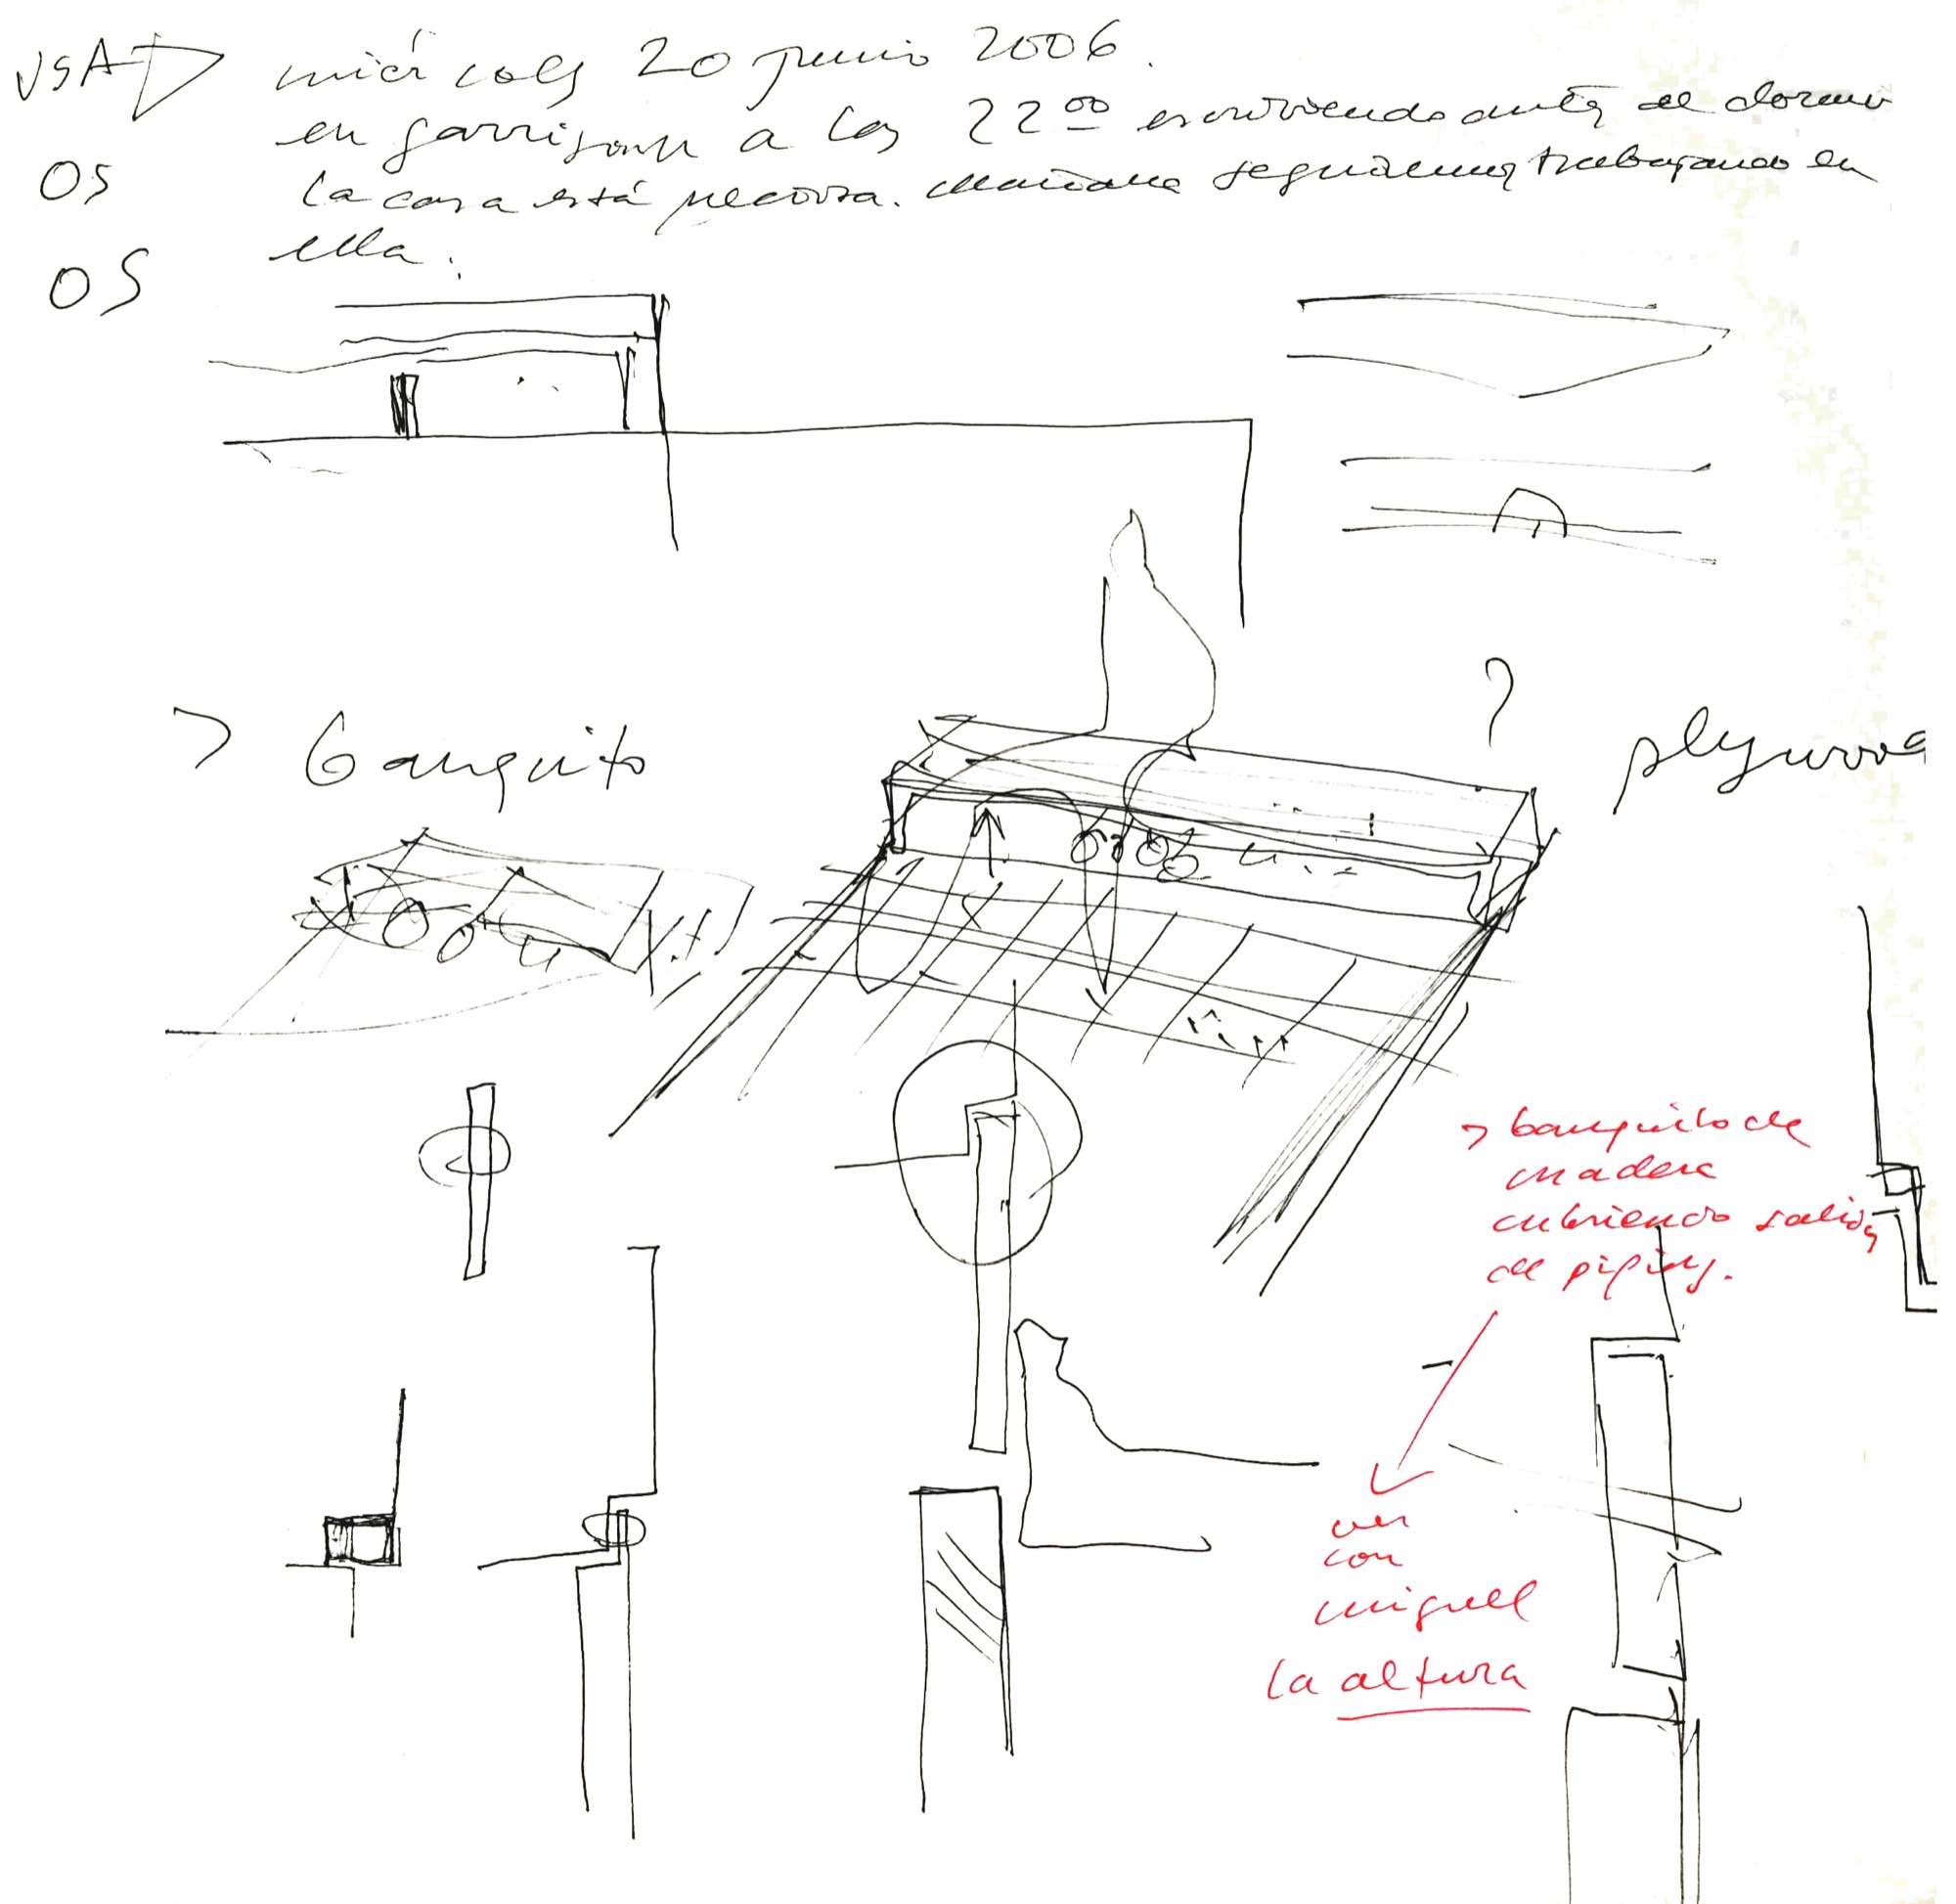 USA
miércoles 20 junio 2006.
en Garrison a las 22⁰⁰ escribiendo antes de dormir
OS
la casa está preciosa. Mañana seguiremos trabajando en
ella.
OS
?
> banquito
plywood
> banquito de
madera
cubriendo salida
de piping.
ver
con
miguel
la altura